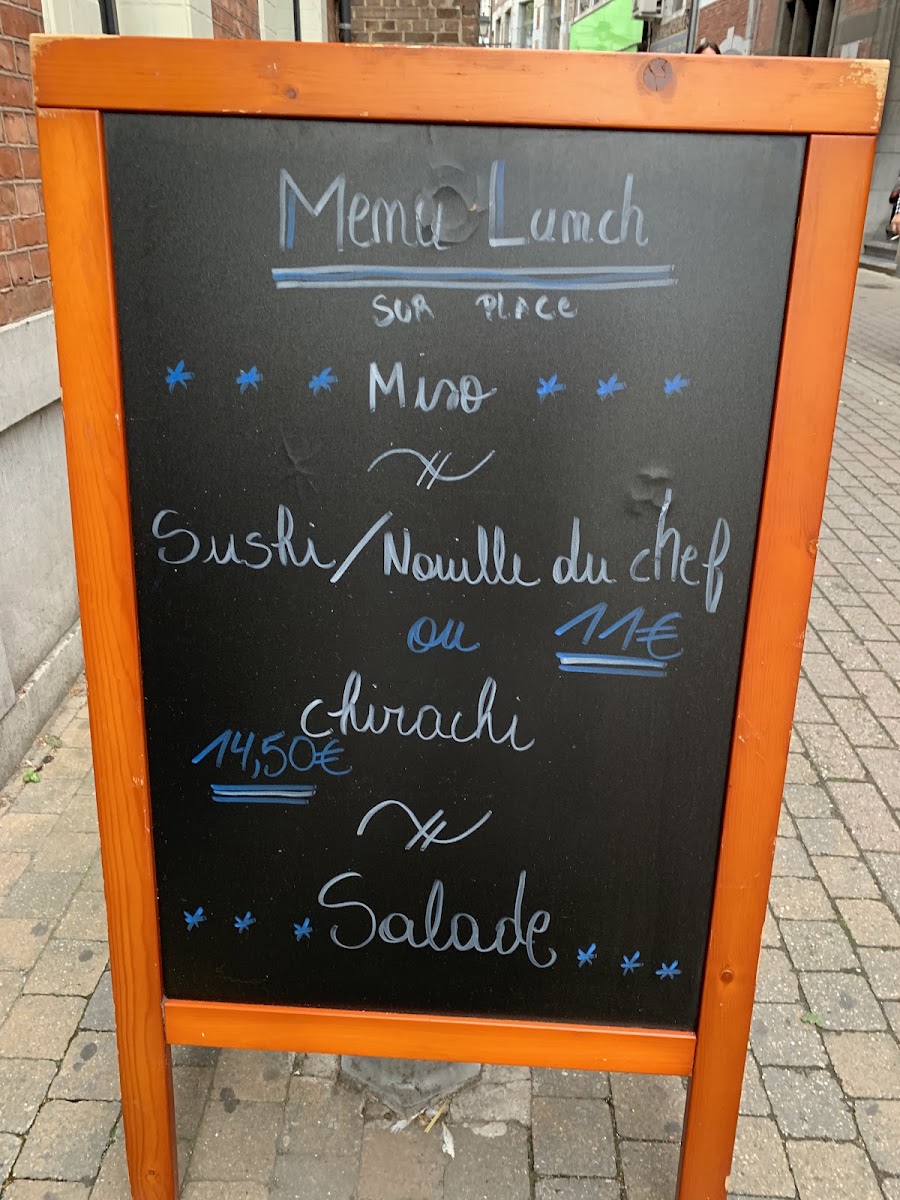 Menu Lunch
SUR PLACE
Miso
Sushi/Nouille du chef
ou 11€
chirachi
14,50€
Salade